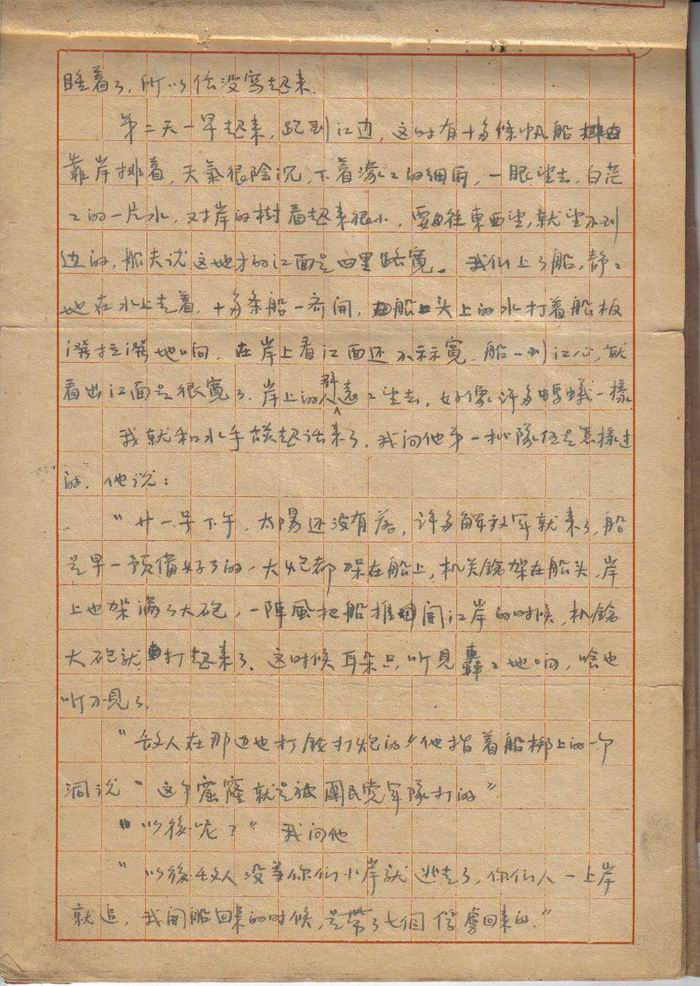 睡着了，所以信没寫起来．
第二天一早起来，跑到江边，这时有十多條帆船
靠岸排着，天氣很陰沉，下着濛々的细雨，一眼望去，白茫
々的一片水，对岸的樹看起来很小，要往東西望，就望不到
边的，船夫说这地方的江面是四里路寬。我们上了船，静々
地在水上走着，十多条船一齐開，船头上的水打着船板
地响，在岸上看江面还不示寬，船一到江心，就
看出江面是很寬了．岸上的人群远々望去，好像许多螞蟻一樣
我就和水手談起话来了，我问他第一批隊伍是怎樣过
的．他说：
“廿一号下午，太陽还没有落，许多解放军就来了，船
是早一预備好了的，大炮都架在船上，机关鎗架在船头，岸
上也架满了大砲，一陣風把船推開江岸的时候，机鎗
大砲就打起来了．这时候耳朵只听見轟々地响，啥也
听不見了．
“敌人在那边也打鎗打炮的”他指着船梆上的一个
洞说“这个窟窿就是被國民党军隊打的”
“以後呢？”我问他
“以後敌人没等你们小岸就逃走了，你们人一上岸
就追，我開船回来的时候，是带了七個俘虜回来的．”